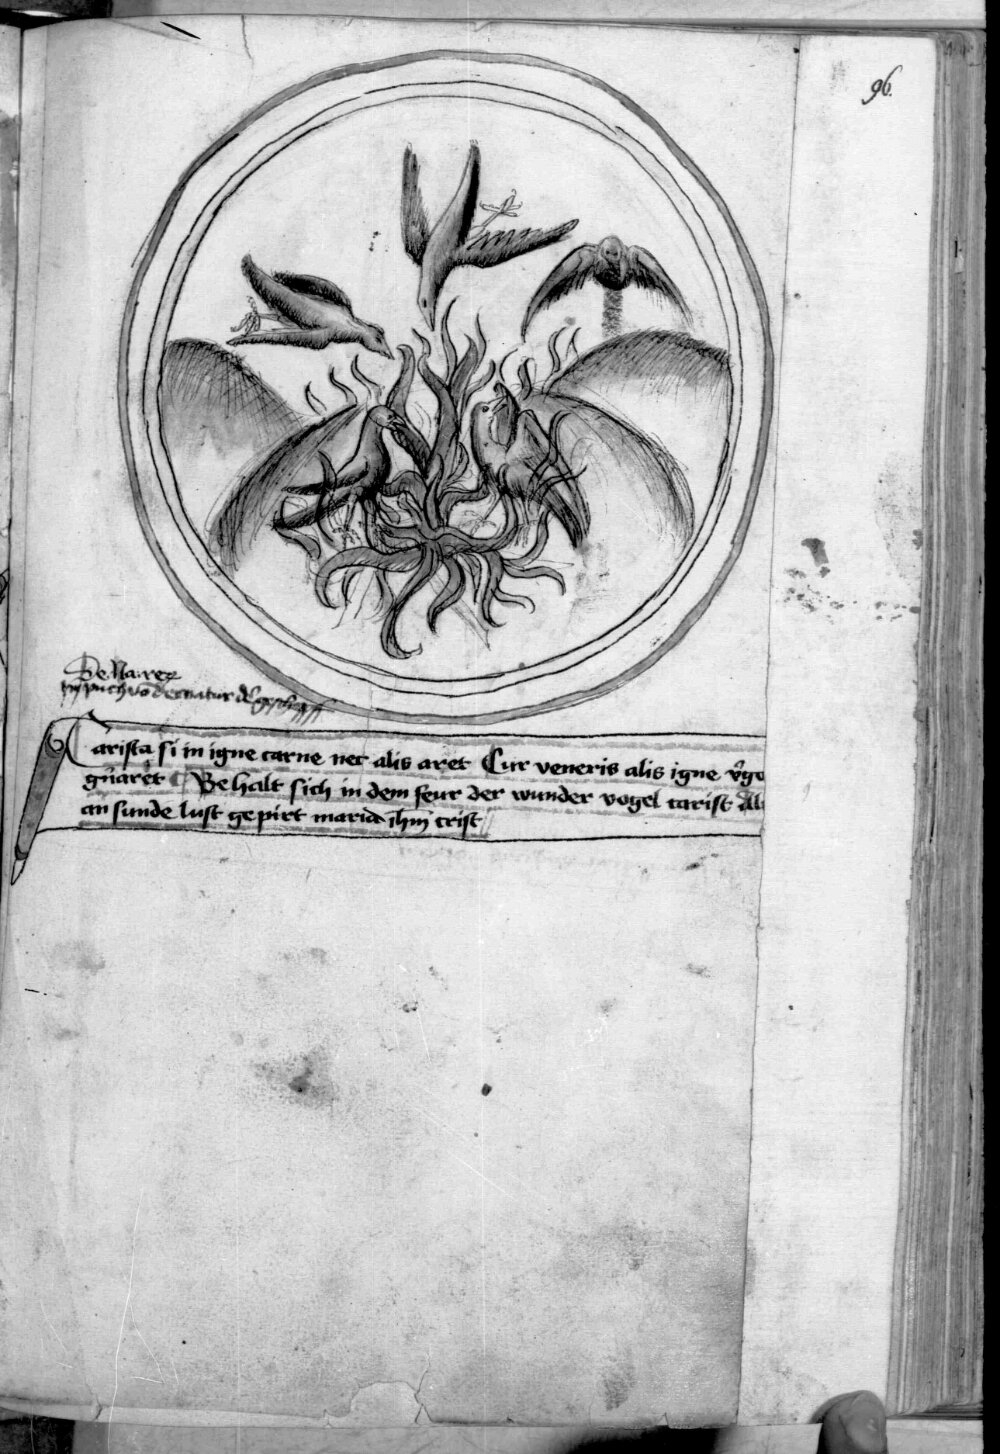 96.
De Na:rez
Carista si in igne carne nec alis aret Cur veneris alis igne v̄go
gn̄aret Behalt sich in dem feur der wunder vogel carist Al
an sunde lust gepirt maria ih̄m crist